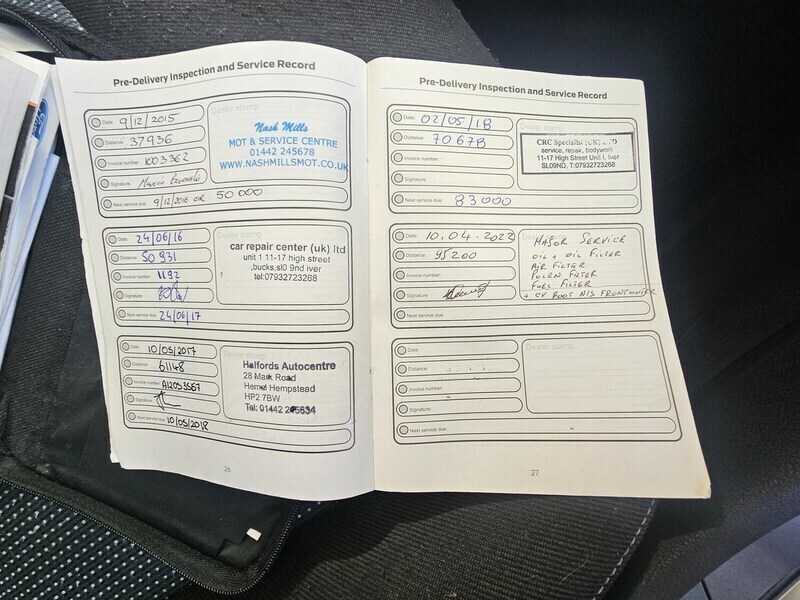 Pre-Delivery Inspection and Service Record
Date: 9/12/2015
Distance: 37936
Invoice number: 1003362
Signature:
Next service due: 9/12/2016 OR 50 000
Dealer stamp
Nash Mills
MOT & SERVICE CENTRE
01442 245678
WWW.NASHMILLSMOT.CO.UK
Date: 24/06/16
Distance: 50 931
Invoice number: 1192
Signature:
Next service due: 24/06/17
Dealer stamp
car repair center (uk) ltd
unit 1 11-17 high street
,bucks,sl0 9nd iver
tel:07932723268
Date: 10/05/2017
Distance: 61148
Invoice number: A12053567
Signature:
Next service due: 10/05/2018
Dealer stamp
Halfords Autocentre
28 Mark Road
Hemel Hempstead
HP2 7BW
Tel: 01442 245634
26
Pre-Delivery Inspection and Service Record
Date: 02/05/18
Distance: 70678
Invoice number:
Signature:
Next service due: 83000
Dealer stamp
CRC Specialist (UK) LTD
service, repair, bodywork
11-17 High Street Unit 1, Iver
SL09ND, T:07932723268
Date: 10.04.2022
Distance: 95200
Invoice number:
Signature:
Next service due:
Dealer stamp
MAJOR SERVICE
OIL + OIL FILTER
AIR FILTER
POLEN FILTER
FUEL FILTER
+ CV BOOT N/S FRONT OUTER
Date:
Distance:
Invoice number:
Signature:
Next service due:
Dealer stamp
27